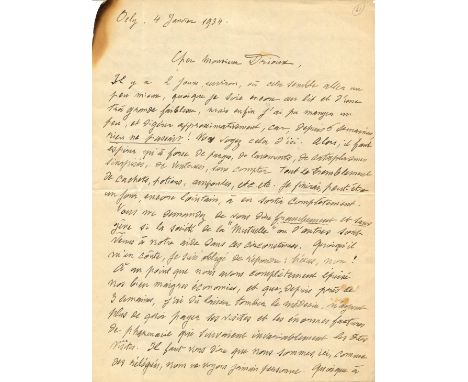 Orly. 4 Janvier 1934.
Cher Monsieur Drioux,
Il y a 2 jours environ, où cela semble aller un
peu mieux, quoique je sois encore au lit et d'une
très grande faiblesse, mais enfin j'ai pu manger un
peu, et digérer approximativement, car, depuis 6 semaines
rien ne passait! Vous voyez cela d'ici. Alors, il faut
espérer qu'à force de purges, de lavements, de cataplasmes
sinapisés, de ventouses, sans compter tout le tremblement
de cachets, potions, ampoules, etc etc. je finirai peut-être
un jour, encore lointain, à en sortir complètement.
Vous me demandez de vous dire franchement et sans
gêne si la société de la "Mutuelle" ou d'autres sont
venus à notre aide dans ces circonstances. Quoiqu'il
m'en coûte, je suis obligé de répondre: hélas, non!
À un point que nous avons complètement épuisé
nos bien maigres économies, et que, depuis près de
3 semaines, j'ai dû laisser tomber le médecin, n'ayant
plus de quoi payer les visites et les énormes factures
de pharmacie qui suivaient invariablement les dites
visites. Il faut vous dire que nous sommes ici, comme
des relégués, nous ne voyons jamais personne. Quoique à